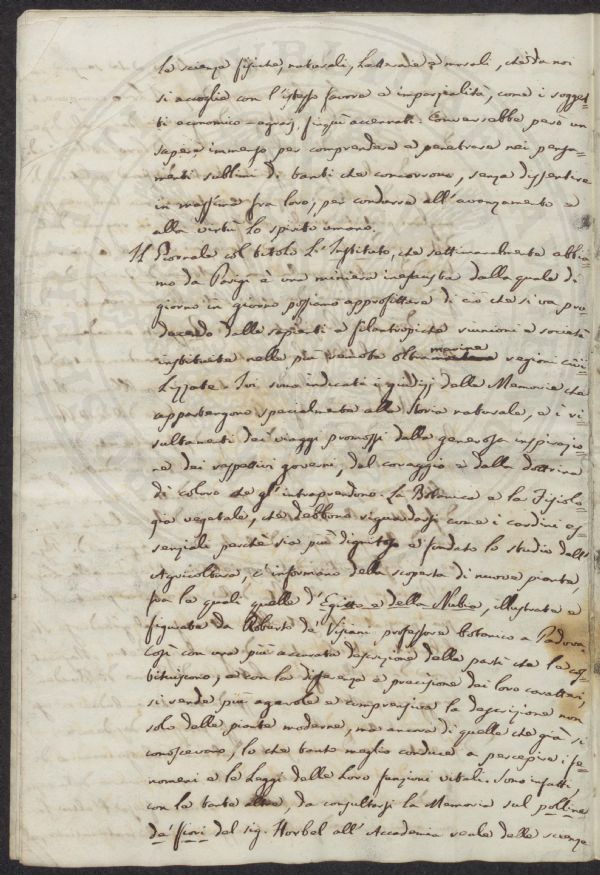 le scienze fisiche, naturali, letterarie e morali, che da noi
si accoglie con l'istesso favore e imparzialità, come i sogget=
ti economico-agrarj finquì accennati. Converrebbe però un
sapere immenso per comprendere e penetrare nei pensa=
menti sublimi di tanti che concorrono, senza dissentire
in massima fra loro, per condurre all'avanzamento e
alla virtù lo spirito umano.
Il Giornale col titolo L'Instituto, che settimanalmente abbia=
mo da Parigi è una miniera inesausta dalla quale di
giorno in giorno possiamo approfittare di ciò che si va pro
ducendo dalle sapienti e filantropiche riunioni e società
instituite nelle più remote oltramarine regioni civi=
lizzate. Ivi sono indicati i giudizj delle Memorie che
appartengono specialmente alla storia naturale, e i ri
sultamenti dei viaggi promossi dalla generosa inspirazio=
ne dei rispettivi governi, dal coraggio e dalla dottrina
di coloro che gl'intraprendono. La Botanica e la Fisiolo=
gia vegetale, che debbono riguardarsi come i cardini es=
senziali perchè sia più dignitoso e fondato lo studio dell'
Agricoltura, c'informano della scoperta di nuove piante,
fra le quali quelle d'Egitto e della Nubia, illustrate e
figurate da Roberto de' Visiani, professore botanico a Padova
Così con una più accurata descrizione delle parti che le co=
stituiscono, e con la differenza e precisione dei loro caratteri,
si rende più agevole e comprensiva la descrizione non
solo delle piante moderne, ma ancora di quelle che già si
conoscevano, lo che tanto meglio conduce a percepire i fe=
nomeni e le Leggi delle loro funzioni vitali. Sono infatti,
con le tante altre, da consultarsi le Memorie sul polline
de' fiori del sig. Horbel all'Accademia reale delle scienze